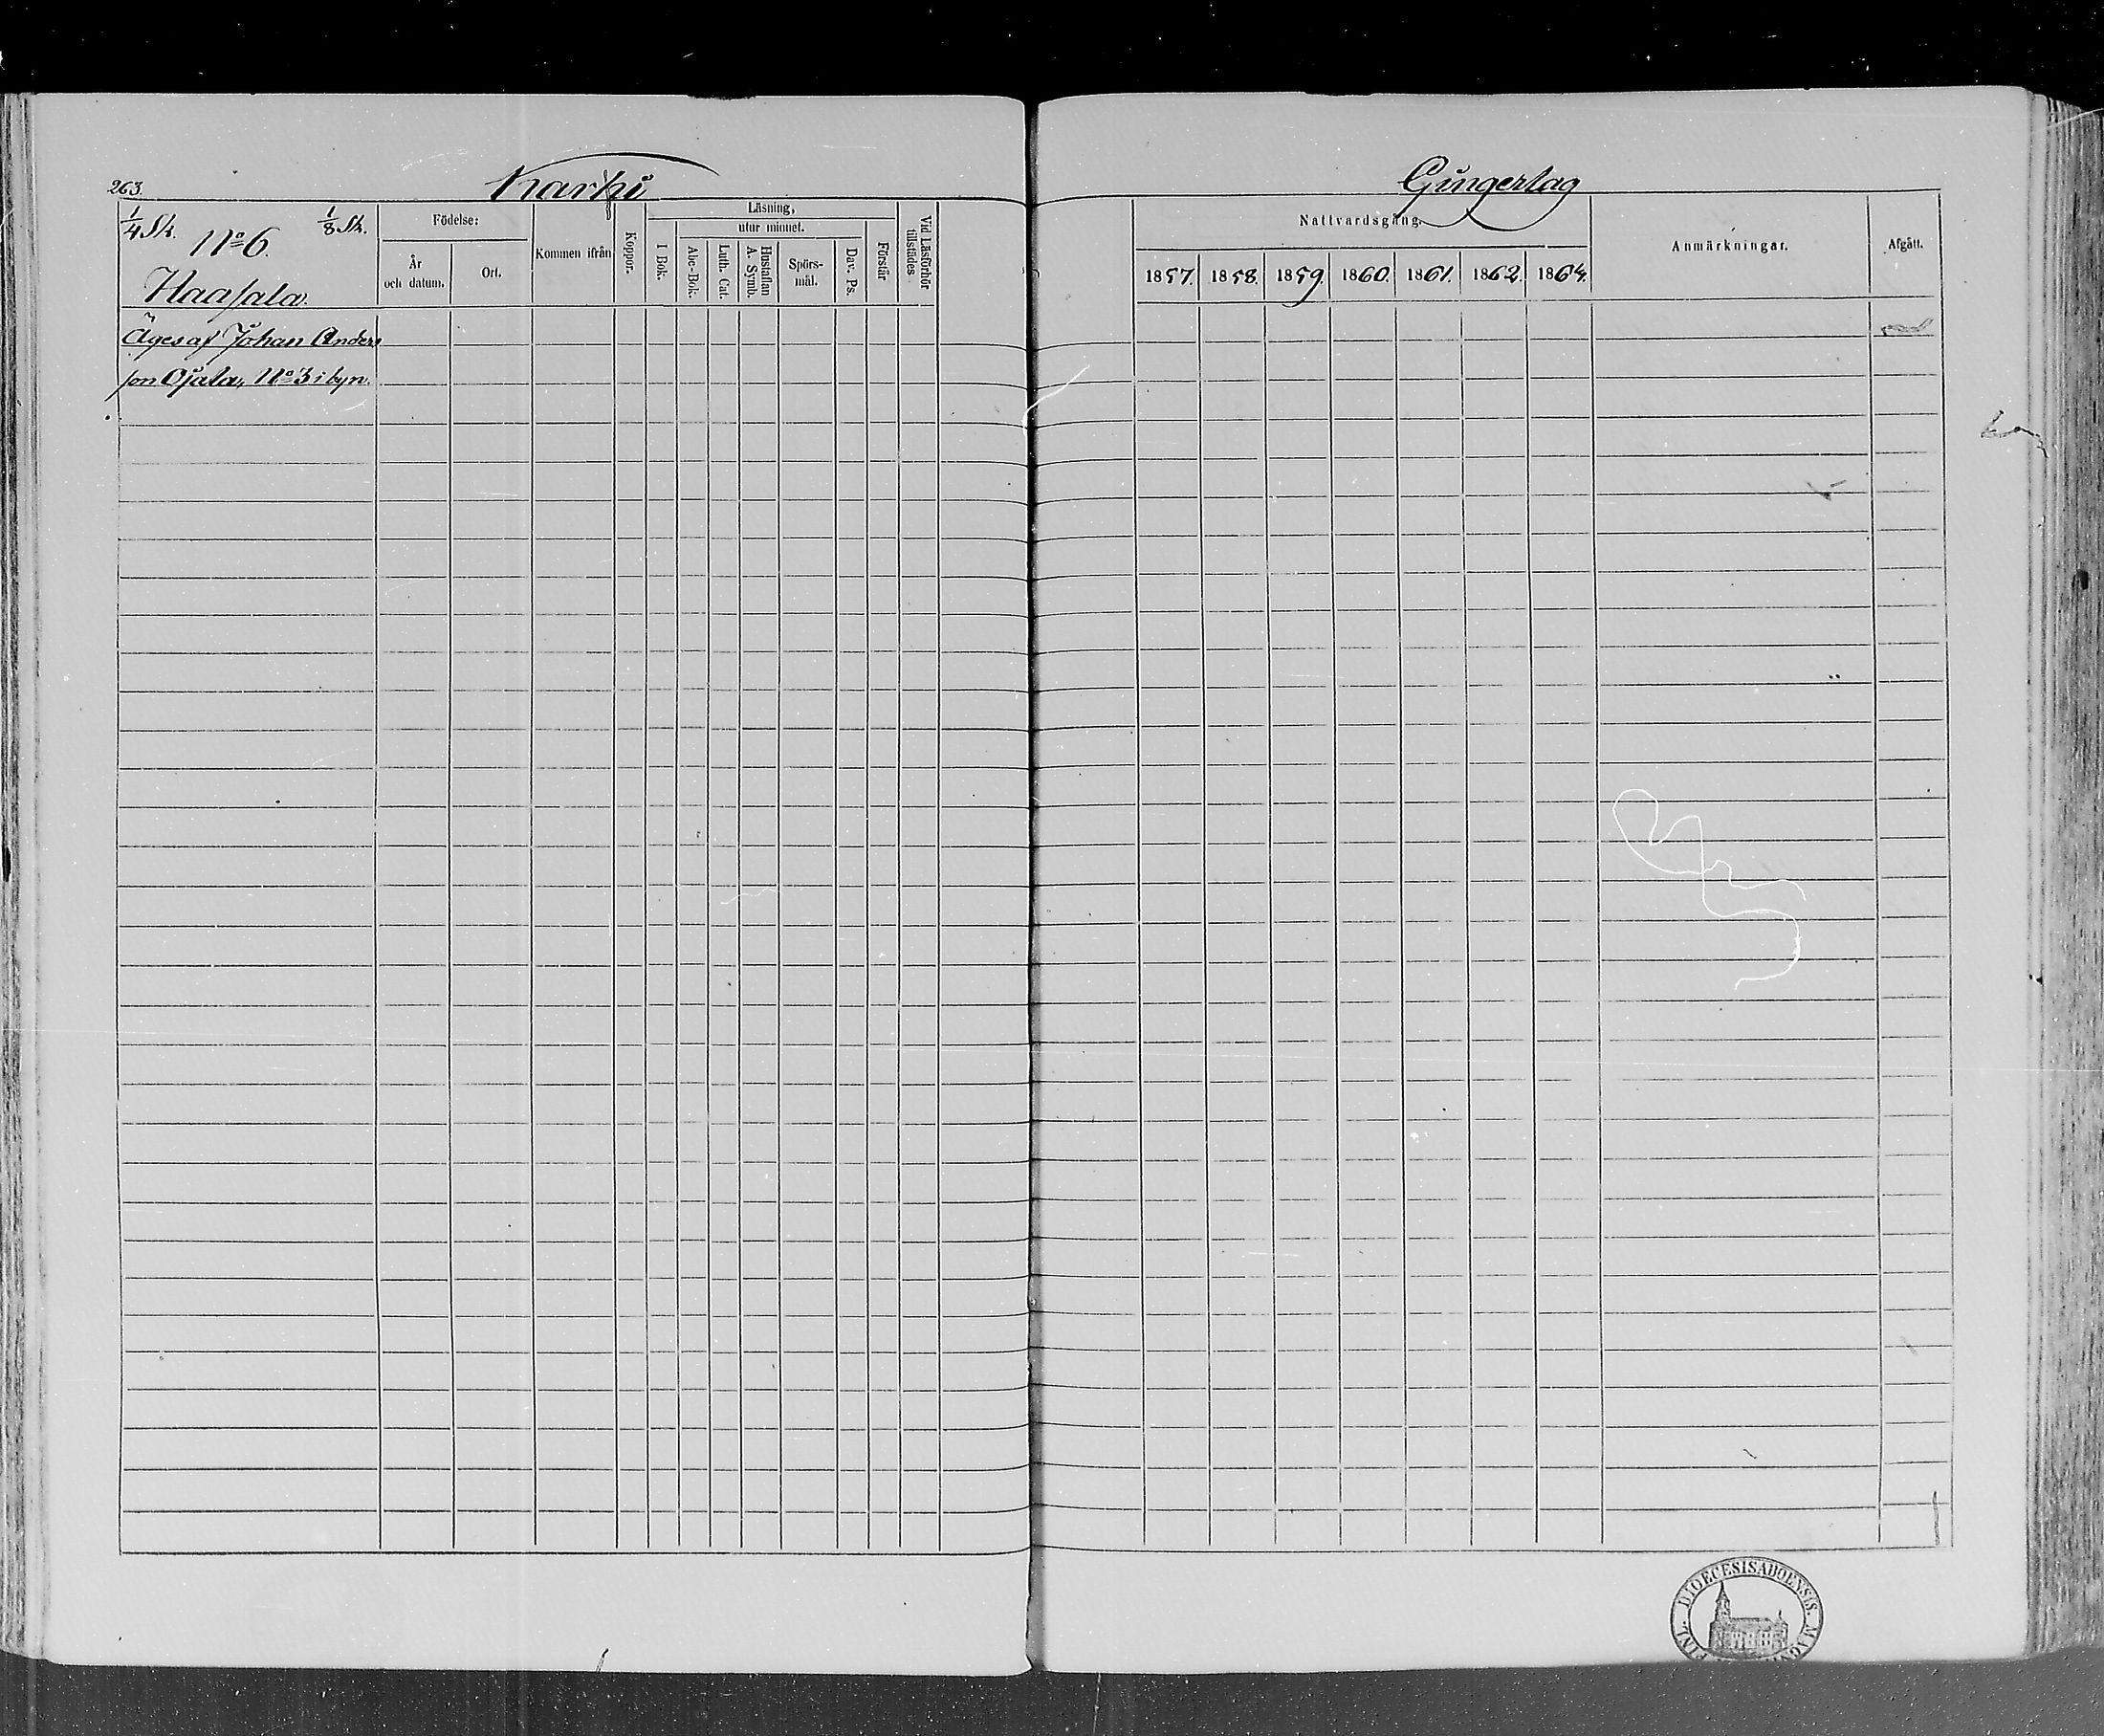 263. Karhi
1/4 Sk. No 6. 1/8 Sk.
Haasala.
Födelse:
År och datum.
Ort.
Kommen ifrån
Koppor.
Läsning,
utur minnet.
I Bok.
Abc-Bok.
Luth. Cat.
Hustaflan A. Symb.
Spörs-mål.
Dav. Ps.
Förstår
Vid Läsförhör tillstädes
Äges af Johan Anders
son Ojala, No 3 i byn.
Gungerlag
Nattvardsgång.
1857. 1858. 1859. 1860. 1861. 1862. 1864.
Anmärkningar.
Afgått.
DIOECESIS ABOENSIS. MAGN
FINL.